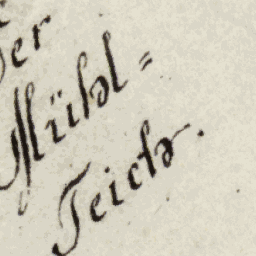 Der
Mühl=
Teich.